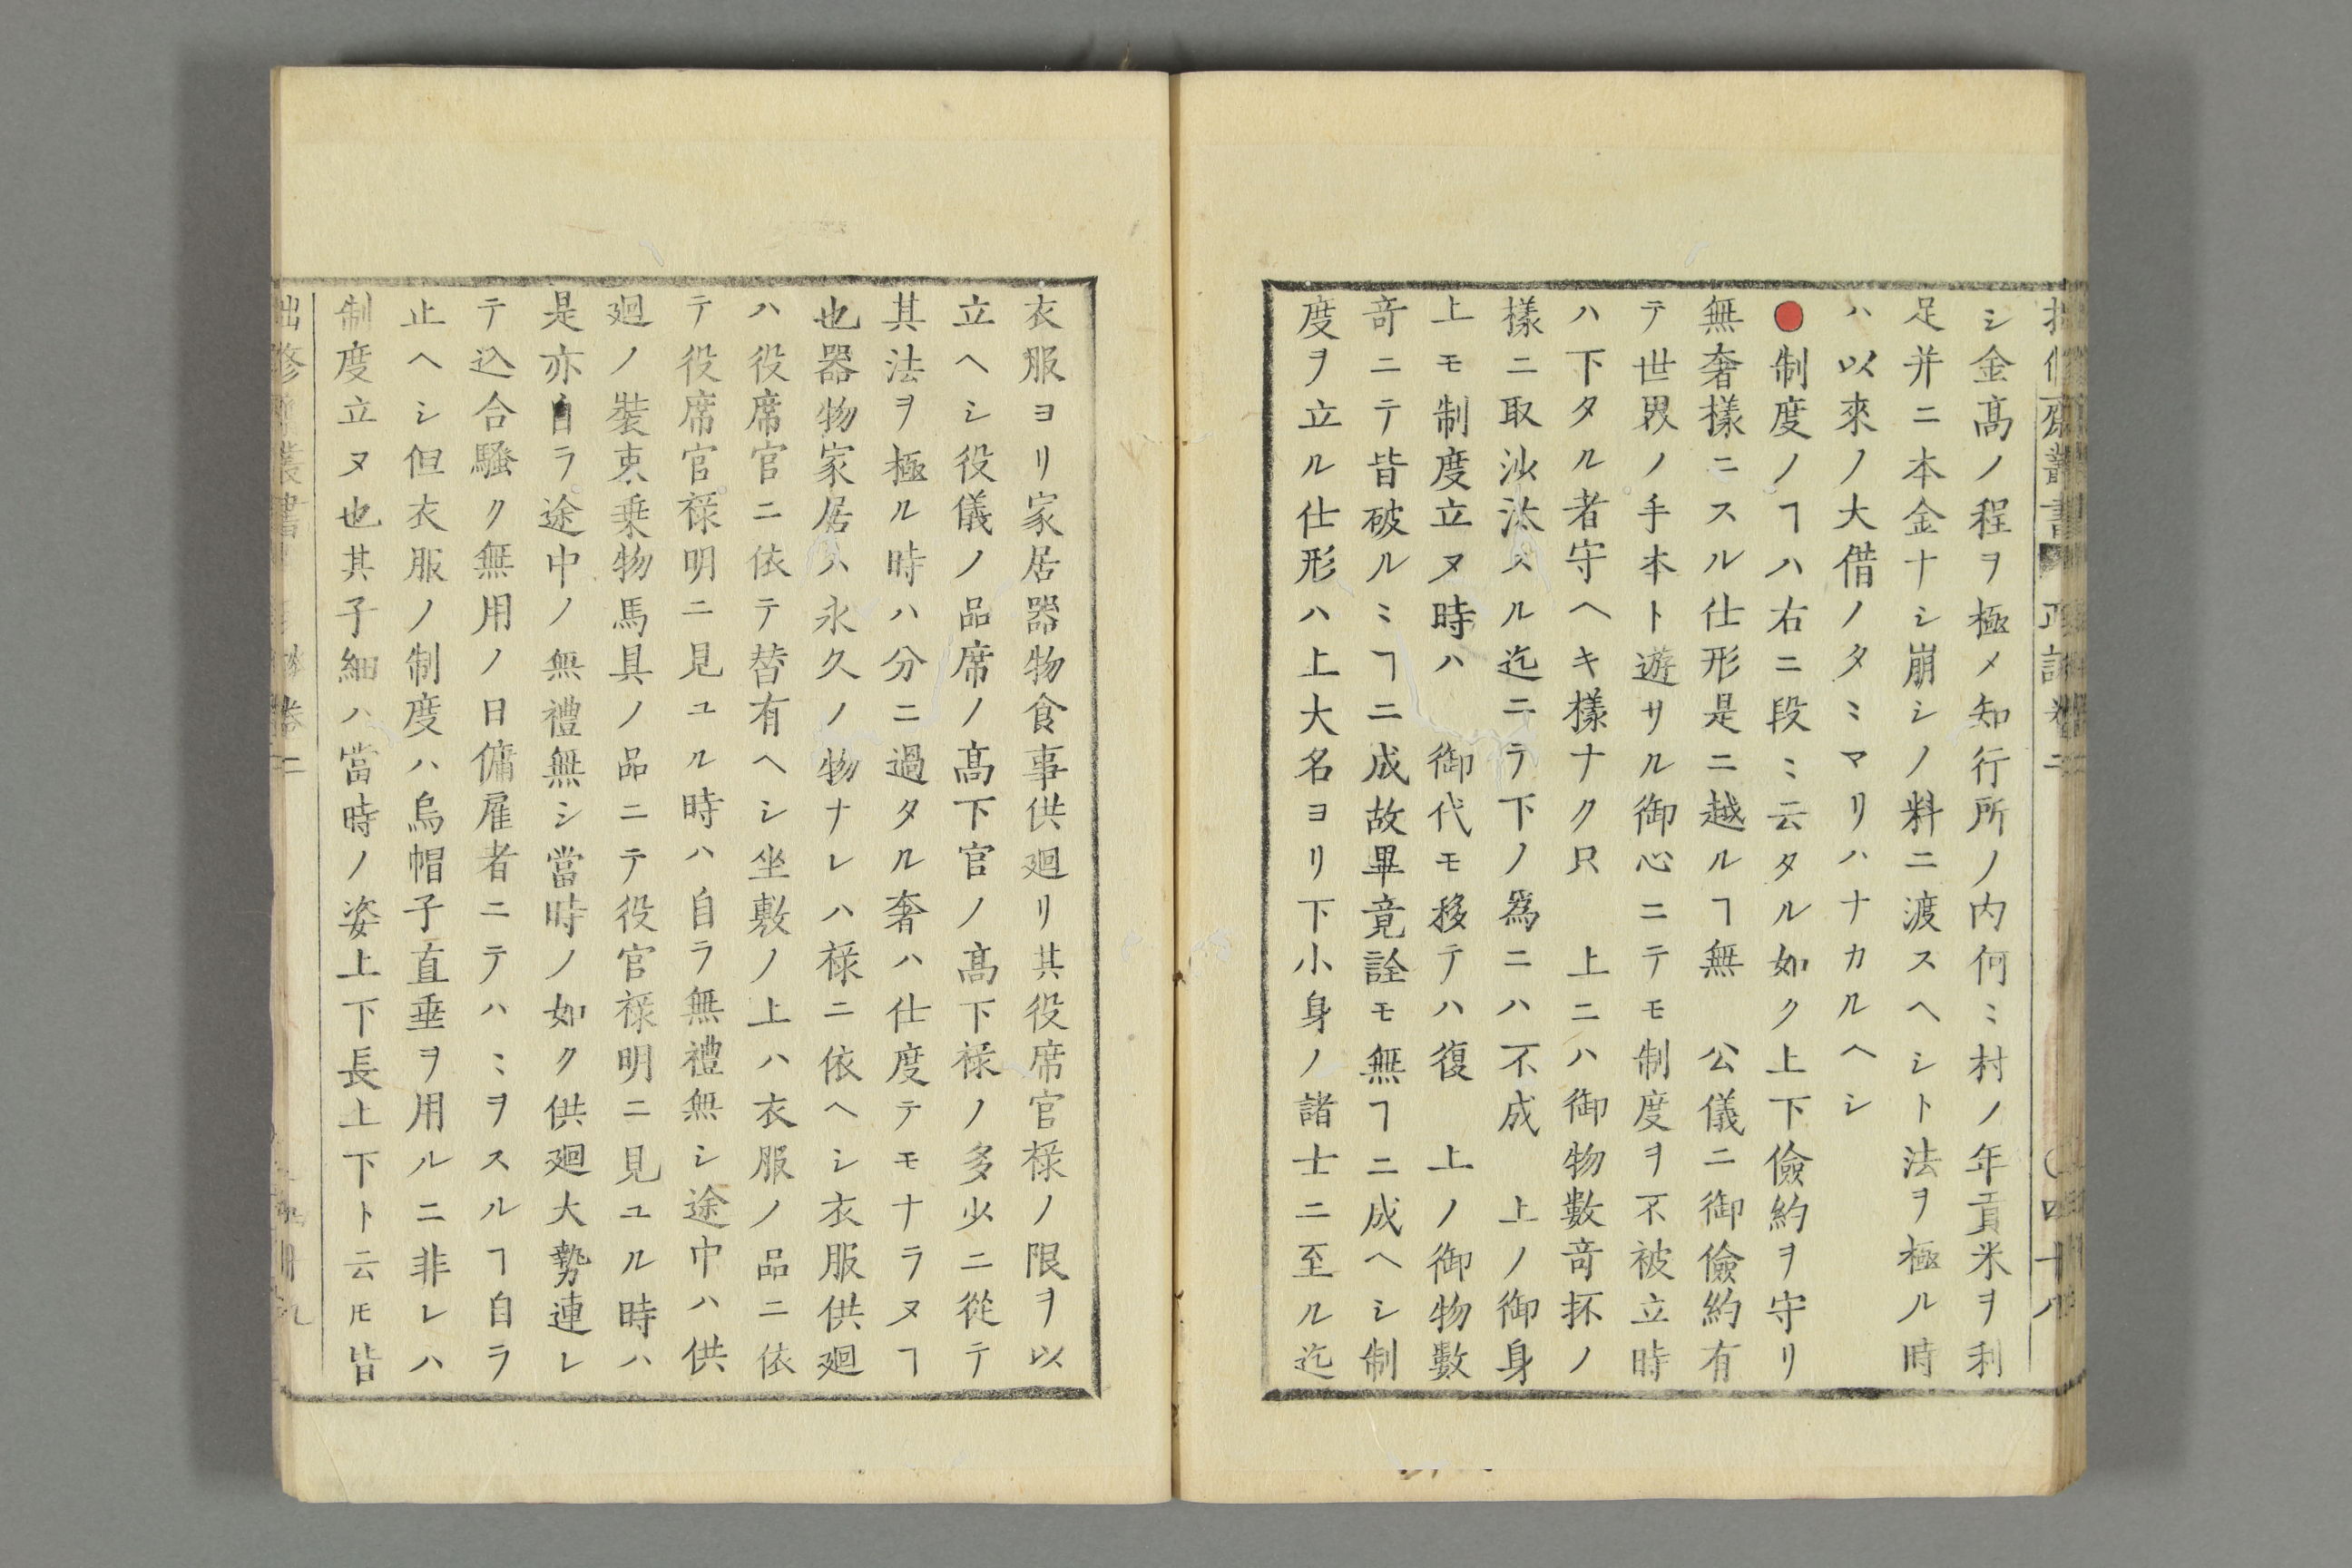 シ金髙ノ程ヲ極メ知行所ノ内何〻村ノ年貢米ヲ利
足并ニ本金ナシ崩シノ料ニ渡スヘシト法ヲ極ル時
ハ以來ノ大借ノタミマリハナカルヘシ
●制度ノヿハ右ニ段〻云タル如ク上下儉約ヲ守リ
無奢樣ニスル仕形是ニ越ルヿ無　公儀ニ御儉約有
テ世界ノ手本ト遊サル御心ニテモ制度ヲ不被立時
ハ下タル者守ヘキ樣ナク只　上ニハ御物數竒抔ノ
樣ニ取沙汰スル迄ニテ下ノ爲ニハ不成　上ノ御身
上モ制度立ヌ時ハ　御代モ移テハ復　上ノ御物數
竒ニテ皆破ルミヿニ成故畢竟詮モ無ヿニ成ヘシ制
度ヲ立ル仕形ハ上大名ヨリ下小身ノ諸士ニ至ル迄
衣服ヨリ家居器物食事供廻リ其役席官祿ノ限ヲ以
立ヘシ役儀ノ品席ノ髙下官ノ髙下祿ノ多少ニ從テ
其法ヲ極ル時ハ分ニ過タル奢ハ仕度テモナラヌヿ
也器物家居ハ永久ノ物ナレハ祿ニ依ヘシ衣服供廻
ハ役席官ニ依テ替有ヘシ坐敷ノ上ハ衣服ノ品ニ依
テ役席官祿明ニ見ユル時ハ自ラ無禮無シ途中ハ供
廻ノ裝束乗物馬具ノ品ニテ役官祿明ニ見ユル時ハ
是亦自ラ途中ノ無禮無シ當時ノ如ク供廻大勢連レ
テ込合騷ク無用ノ日傭雇者ニテハミヲスルヿ自ラ
止ヘシ但衣服ノ制度ハ烏帽子直垂ヲ用ルニ非レハ
制度立ヌ也其子細ハ當時ノ姿上下長上下ト云𪜈皆